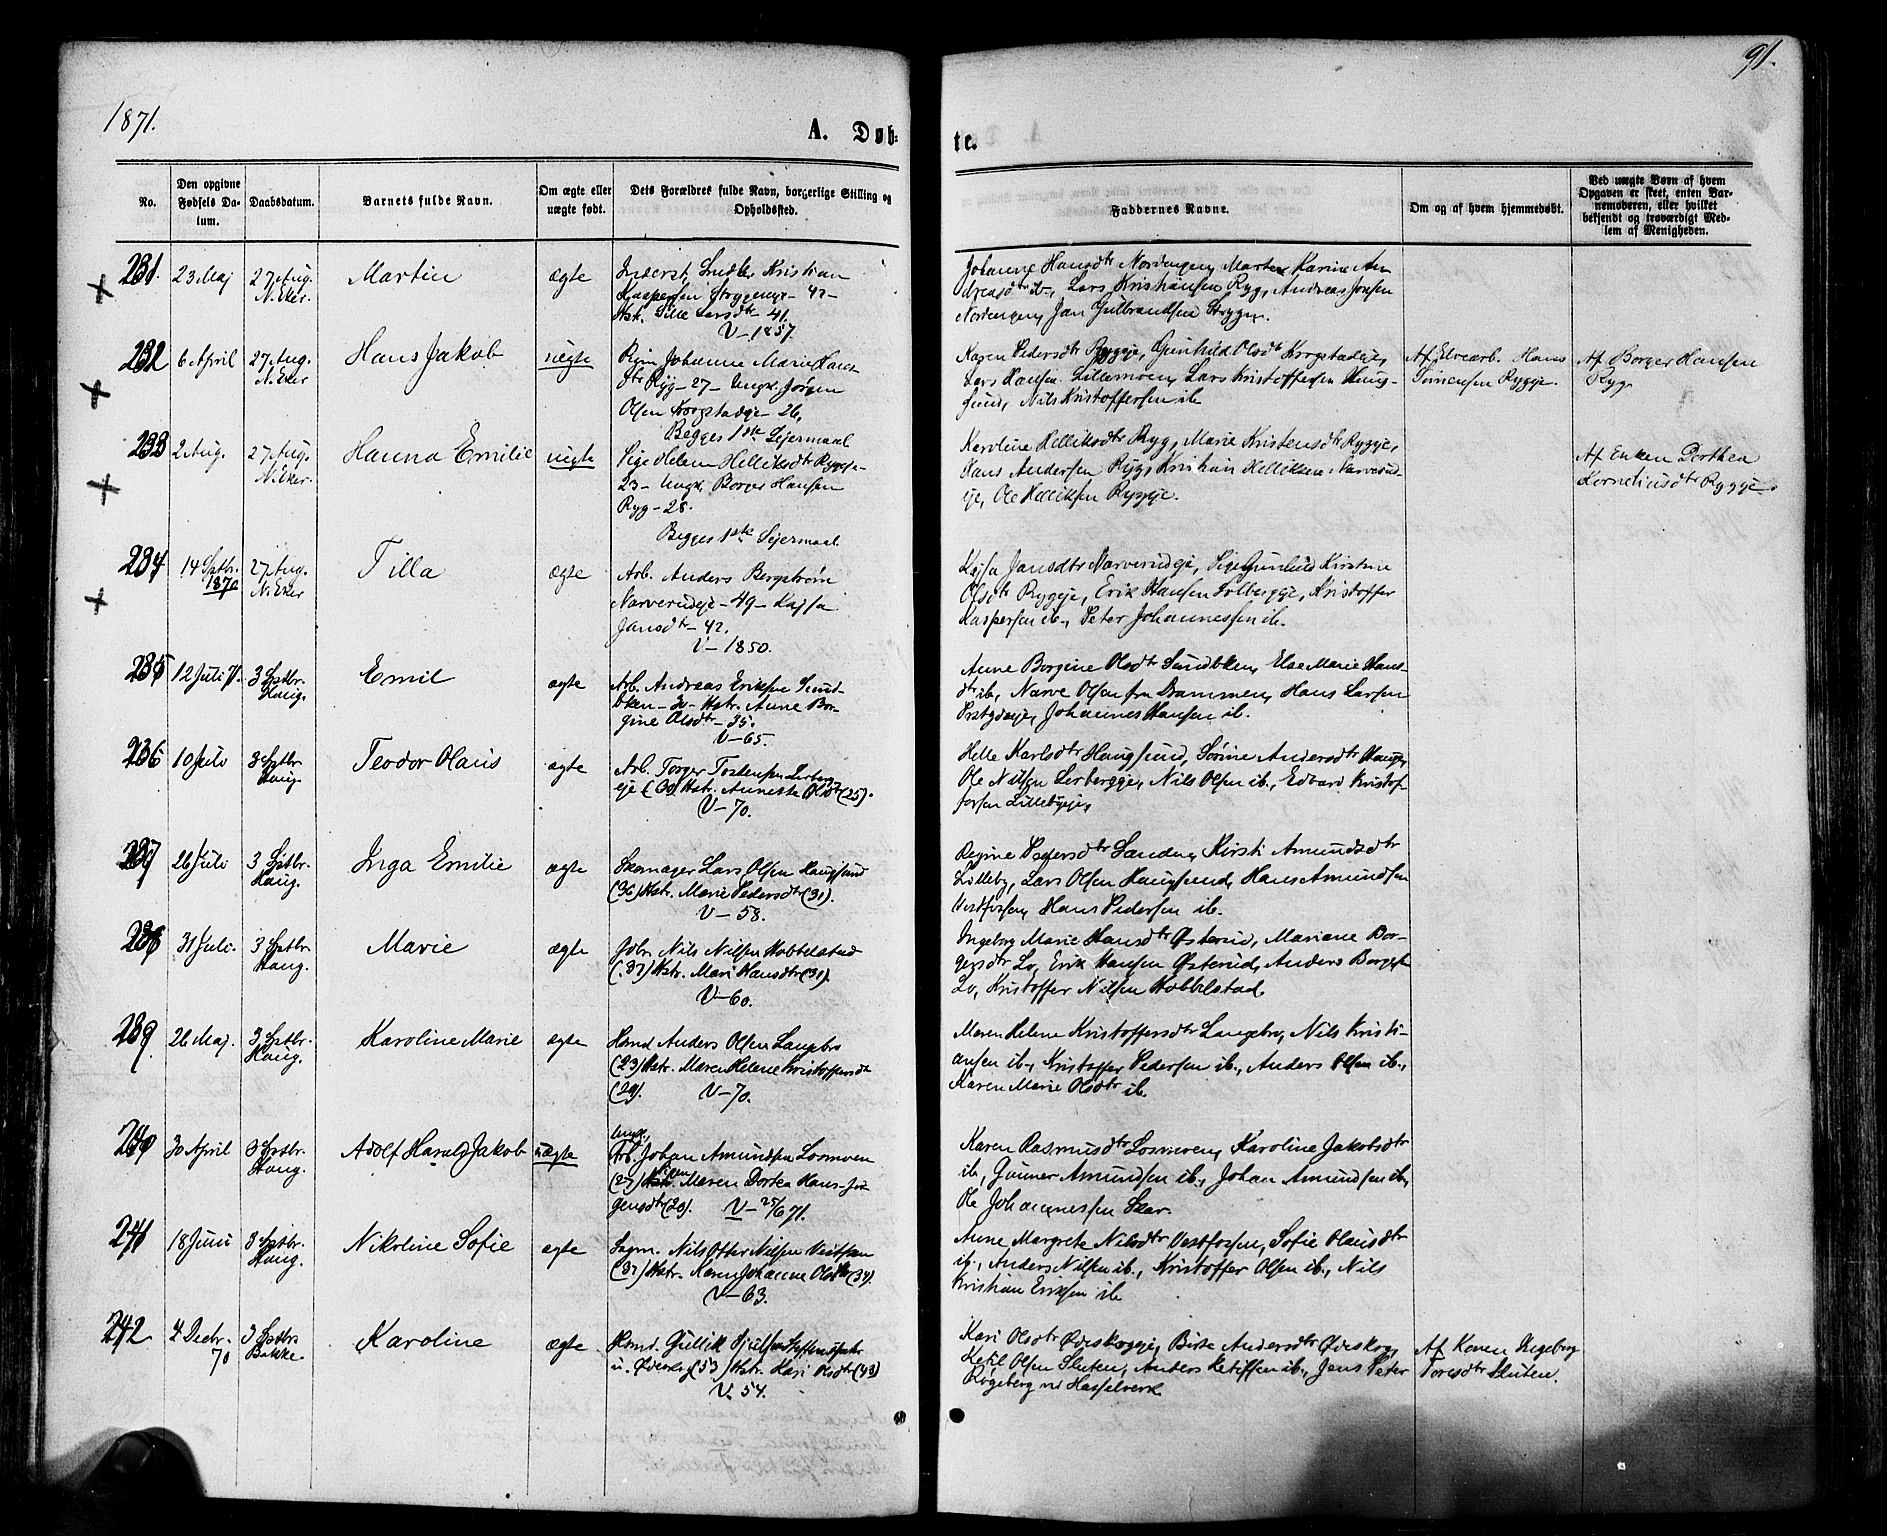 1871.
91.
A. Døb-
te.
No.
Den opgivne Fødsels Da- tum.
Daabsdatum.
Barnets fulde Navn.
Om ægte eller uægte født.
Dets Forældres fulde Navn, borgerlige Stilling og Opholdssted.
Faddernes Navne.
Om og af hvem hjemmedøbt.
Ved uægte Børn af hvem Opgaven er skeet, enten Bar- nemoderen, eller hvilket bekjendt og troværdigt Med- lem af Menigheden.
231. 23 Maj 27 Aug. N. Eker. Martin ægte
Inderst, Kristian
Kaspersen - 42 -
Hstr. Sille Larsdtr - 41.
V - 1857.
Johanne Hansdtr Nordengen, Marte Karine An-
dreasdtr ib., Lars Kristiansen Ryg, Andreas Jonsen
Nordengen, Jan Gulbrandsen
232 6 April 27 Aug. N. Eker. Hans Jakob uægte
Pige Johanne Marie Hans-
dtr Ryg - 27 - Ungk. Jørgen
Olsen Krogstadeje - 26,
Begges 1ste Lejermaal
Karen Pedersdtr Ryggeje, Gunhild Olsdtr Krogstadeje,
Lars Hansen Lillemoen, Lars Kristoffersen Haug-
sund, Nils Kristoffersen ib.
Af Elvearb. Hans
Simensen Ryggeje.
Af Borger Hansen
Ryg.
233 2 Aug. 27 Aug. N. Eker. Hanna Emilie uægte
Pige Helene Helliksdtr Ryggeje
23 - Ungk. Borger Hansen
Ryg - 28.
Begges 1ste Lejermaal
Karoline Helliksdtr Ryg, Marie Kristensdtr Ryggeje,
Hans Andersen Ryg, Kristian Helliksen Narverud-
eje, Ole Helliksen Ryggeje.
Af Enken Dorthea
Korneliusdtr Ryggeje.
234 14 Sptbr. 1870 27 Aug. N. Eker Tilla ægte
Arb. Anders Bergstrøm
Narverudeje - 49 - Kajsa
Jansdtr - 42.
V - 1850.
Kajsa Jansdtr Narverudeje, Pige Gunhild Kirstine
Olsdtr Ryggeje, Erik Hansen Solbergeje, Kristoffer
Kaspersen ib., Peter Johannessen ib.
235 12 Juli 71. 3 Sptbr. Haug. Emil ægte
Arb. Andreas Eriksen Sund-
bken - Hstr. Anne Bor-
gine Olsdtr - 35.
V - 65.
Anne Borgine Olsdtr Sundbken, Else Marie Hans-
dtr ib., Narve Olsen fra Drammen, Hans Larsen
Johannes Hansen ib.
236 10 Juli 3 Sptbr Haug. Teodor Olaus ægte
Arb. Torger Tostensen Lerberg-
eje (30) Hstr. Annette Olsdtr (25).
V - 70.
Helle Karlsdtr Haugsund, Sørine Andersdtr Haug,
Ole Nilsen Lerbergeje, Nils Olsen ib., Edvard Kristof-
fersen Lillebyeje,
237 26 Juli 3 Sptbr. Haug. Inga Emilie ægte
Skomager Lars Olsen Haugsund
(36) Hstr. Marie Pedersdtr (31).
V - 58.
Regine Pedersdtr Sanden, Kirsti Amundsdtr
Lilleby, Lars Olsen Haugsund, Hans Amundsen
Vestfossen, Hans Pedersen ib.
238 31 Juli. 3 Sptbr. Haug. Marie ægte
Gdbr. Nils Nilsen Hobbelstad
(37) Hstr. Mari Hansdtr (31).
V - 60.
Ingeborg Marie Hansdtr Østerud, Mariane Bor-
gersdtr Lo, Erik Hansen Østerud, Anders Borgersen
Lo, Kristoffer Nilsen Hobbelstad.
239. 26 Maj. 3 Sptbr. Haug. Karoline Marie ægte
Hsmd Anders Olsen Langebro
(23) Hstr. Maren Helene Kristoffersdtr
V - 70.
Maren Helene Kristoffersdtr Langebro, Nils Kristi-
ansen ib., Kristoffer Pedersen ib., Anders Olsen ib.,
Karen Marie Olsdtr ib.
240 30 April 3 Sptbr. Haug. Adolf Harald Jakob uægte
Ungk.
Arb. Johan Amundsen Losmoen
(27) Pigen Maren Dortea Hans Jør-
gensdtr (20). V - 25/6 71.
Karen Rasmusdtr Losmoen, Karoline Jakobsdtr
ib., Gunner Amundsen ib., Johan Amundsen ib.,
Ole Johannessen Skar.
241 18 Juni 3 Sptbr. Haug. Nikoline Sofie ægte
Sagm. Nils Otter Nilsen Vestfossen
(37) Hstr. Karen Johanne Olsdtr (34).
V - 63.
Anne Margrete Nilsdtr Vestfossen, Sofie Olausdtr
ib., Anders Nilsen ib., Kristoffer Olsen ib., Nils
Kristian Eriksen ib.
242. 4 Decbr. 70 3 Sptbr. Bakke. Karoline ægte
Hsmd. Gullik
u. Ødeskog (53) Hstr. Kari Olsdtr (43)
V. 54.
Kari Olsdtr Ødeskogeje, Birte Andersdtr Ødeskog,
Ketil Olsen Sluten, Anders Ketilsen ib., Jens Peter
Rogeberg v. Hasselverk
Af Karen Ingeborg
Toresdtr Sluten.